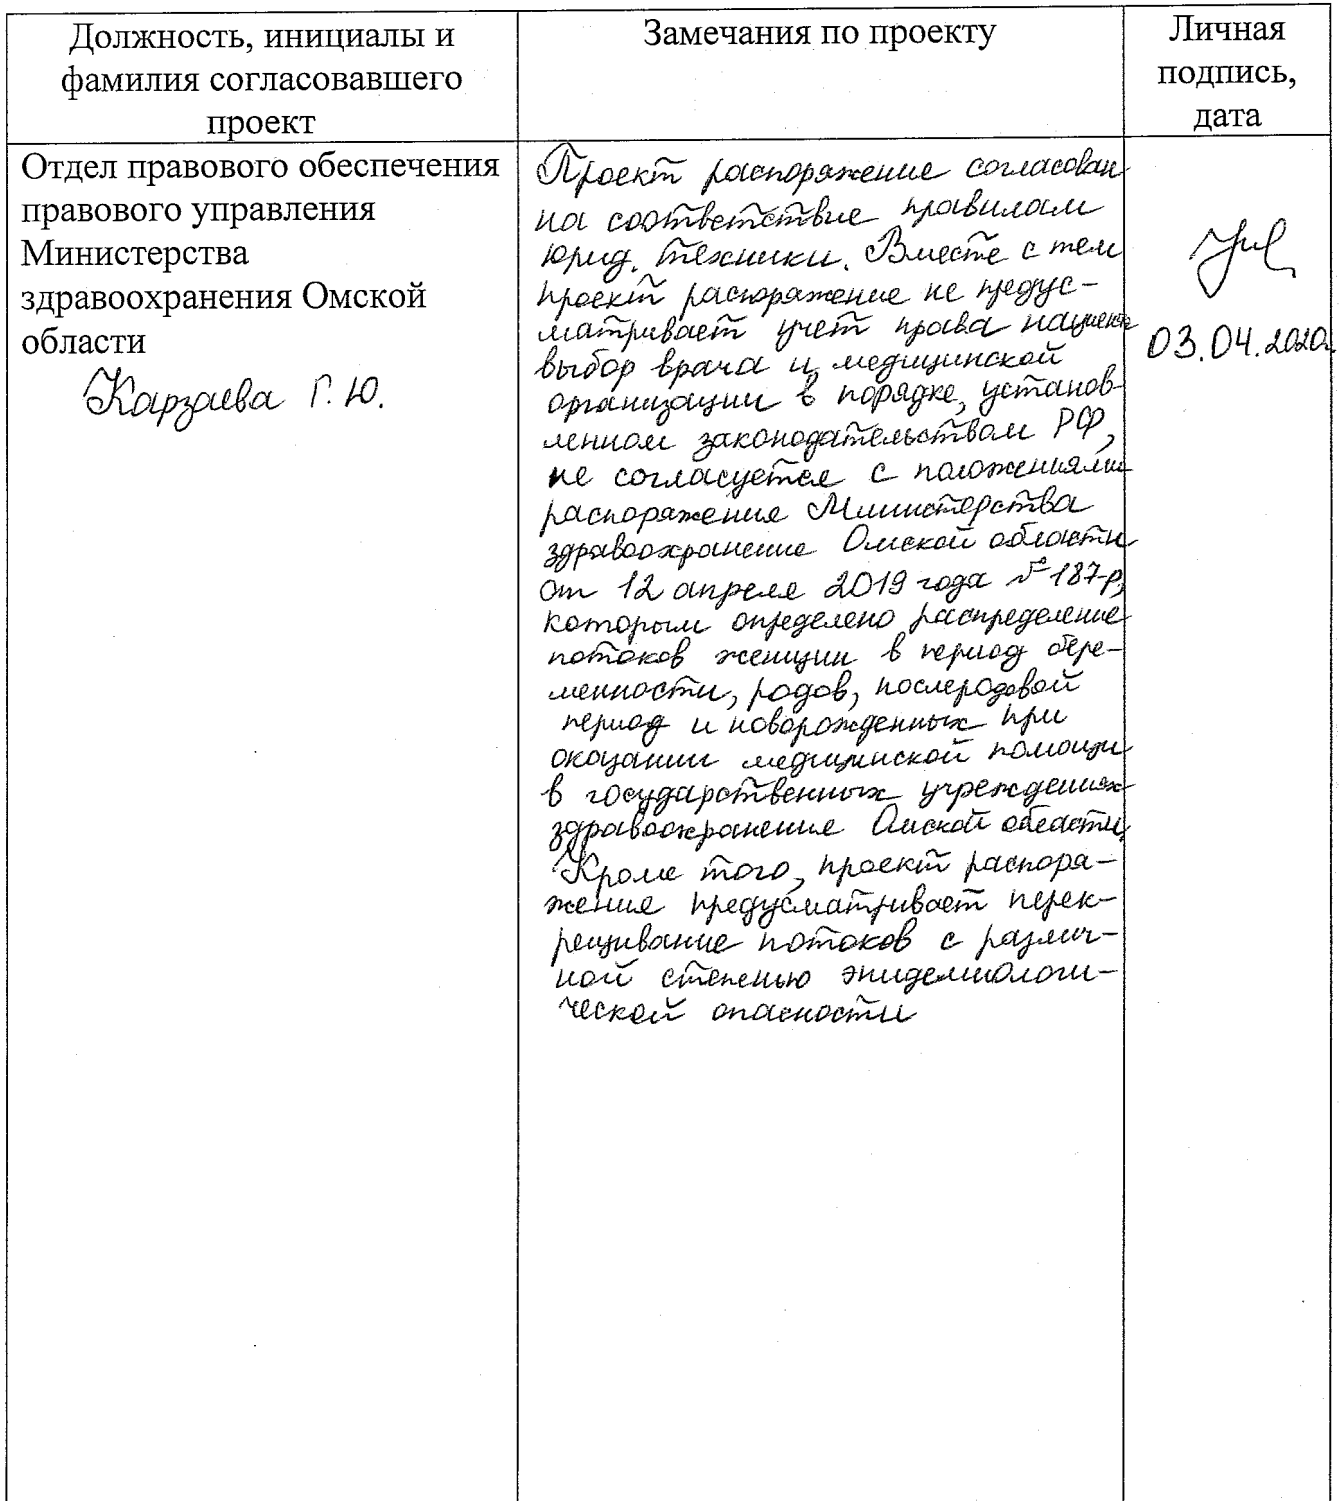 Должность, инициалы и
фамилия согласовавшего
проект
Замечания по проекту
Личная
подпись,
дата
Отдел правового обеспечения
правового управления
Министерства
здравоохранения Омской
области
Карзаева Г. Ю.
Проект распоряжение согласован
на соответствие правилам
юрид. техники. Вместе с тем
проект распоряжение не предус-
матривает учет права пациента
выбор врача и медицинской
организации в порядке, установ-
ленном законодательством РФ,
не согласуется с положениями
распоряжение Министерства
здравоохранение Омской области
от 12 апреля 2019 года № 187-р,
которым определено распределение
потоков женщин в период бере-
менности, родов, послеродовой
период и новорожденных при
оказании медицинской помощи
в государственных учреждениях
здравоохранение Омской области.
Кроме того, проект распоря-
жение предусматривает перек-
рещивание потоков с различ-
ной степенью эпидемиологи-
ческой опасности
03.04.2020г.